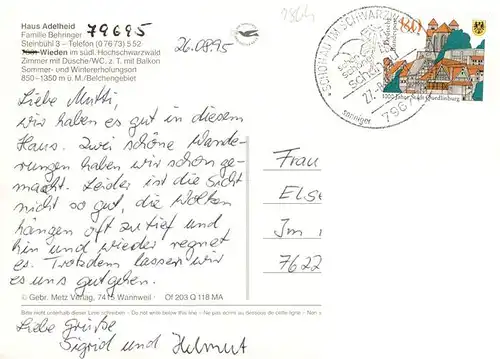 Haus Adelheid
Familie Behringer 79695
Steinbühl 3 – Telefon (0 76 73) 5 52
Wieden im südl. Hochschwarzwald
Zimmer mit Dusche/WC, z. T. mit Balkon
Sommer- und Wintererholungsort
850–1350 m ü. M./Belchengebiet
26.08.95
Liebe Mutti,
wir haben es gut in diesem
Haus. Zwei schöne Wande-
rungen haben wir schon ge-
macht. Leider ist die Sicht
nicht so gut, die Wolken
hängen oft zu tief und
hin und wieder regnet
es. Trotzdem lassen wir
es uns gutgehen.
© Gebr. Metz Verlag, 7415 Wannweil Of 203 Q 118 MA
Bitte nicht unterhalb dieser Linie schreiben – Do not write below this line – Ne pas écrire au dessous de cette ligne
Liebe Grüße
Sigrid und Helmut
SCHÖNAU IM SCHWARZW
sonniger
796
Deutsche Bundespost
1000 Jahre Stadt Quedlinburg
Frau
Else
Im
7622